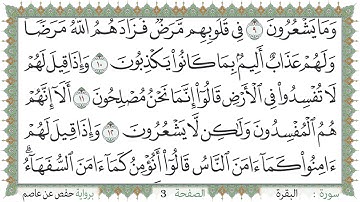 وَمَا يَشْعُرُونَ ٩ فِى قُلُوبِهِم مَّرَضٌ فَزَادَهُمُ ٱللَّهُ مَرَضًا
وَلَهُمْ عَذَابٌ أَلِيمٌۢ بِمَا كَانُوا۟ يَكْذِبُونَ ١٠ وَإِذَا قِيلَ لَهُمْ
لَا تُفْسِدُوا۟ فِى ٱلْأَرْضِ قَالُوٓا۟ إِنَّمَا نَحْنُ مُصْلِحُونَ ١١ أَلَآ إِنَّهُمْ
هُمُ ٱلْمُفْسِدُونَ وَلَـٰكِن لَّا يَشْعُرُونَ ١٢ وَإِذَا قِيلَ لَهُمْ
ءَامِنُوا۟ كَمَآ ءَامَنَ ٱلنَّاسُ قَالُوٓا۟ أَنُؤْمِنُ كَمَآ ءَامَنَ ٱلسُّفَهَآءُ ۗ
سورة : البقرة الصفحة 3 برواية حفص عن عاصم